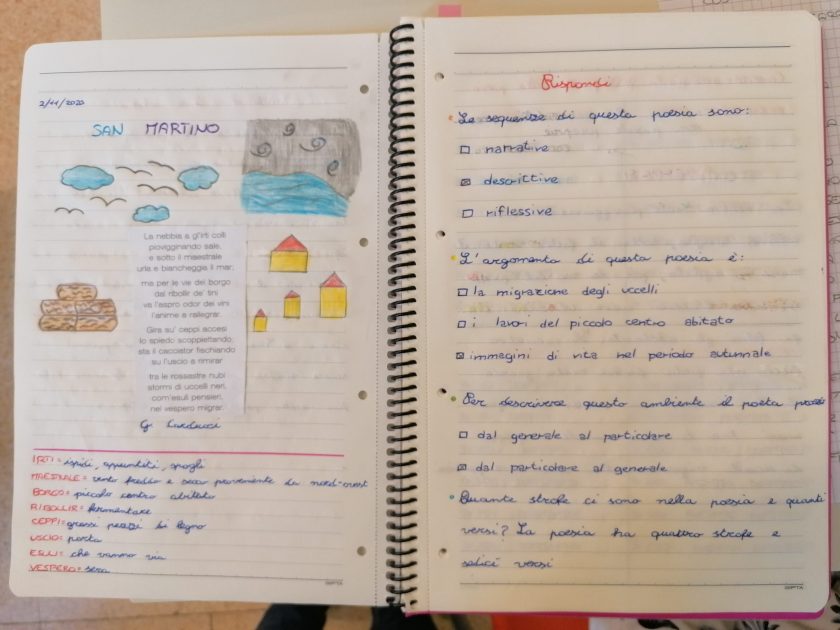 2/11/2020
SAN MARTINO
La nebbia a gl'irti colli
piovigginando sale,
e sotto il maestrale
urla e biancheggia il mar;
ma per le vie del borgo
dal ribollir de' tini
va l'aspro odor dei vini
l'anime a rallegrar.
Gira su' ceppi accesi
lo spiedo scoppiettando:
sta il cacciator fischiando
su l'uscio a rimirar
tra le rossastre nubi
stormi di uccelli neri,
com'esuli pensieri,
nel vespero migrar.
G. Carducci
IRTI= ispidi, appuntiti, spogli
MAESTRALE= vento freddo e secco proveniente da nord-ovest
BORGO= piccolo centro abitato
RIBOLLIR= fermentare
CEPPI= grossi pezzi di legno
USCIO= porta
ESULI= che vanno via
VESPERO= sera
Rispondi
Le sequenze di questa poesia sono:
narrative
descrittive
riflessive
L'argomento di questa poesia è:
la migrazione degli uccelli
i lavori del piccolo centro abitato
immagini di vita nel periodo autunnale
Per descrivere questo ambiente il poeta
dal generale al particolare
dal particolare al generale
Quante strofe ci sono nella poesia e quanti
versi? La poesia ha quattro strofe e
sedici versi